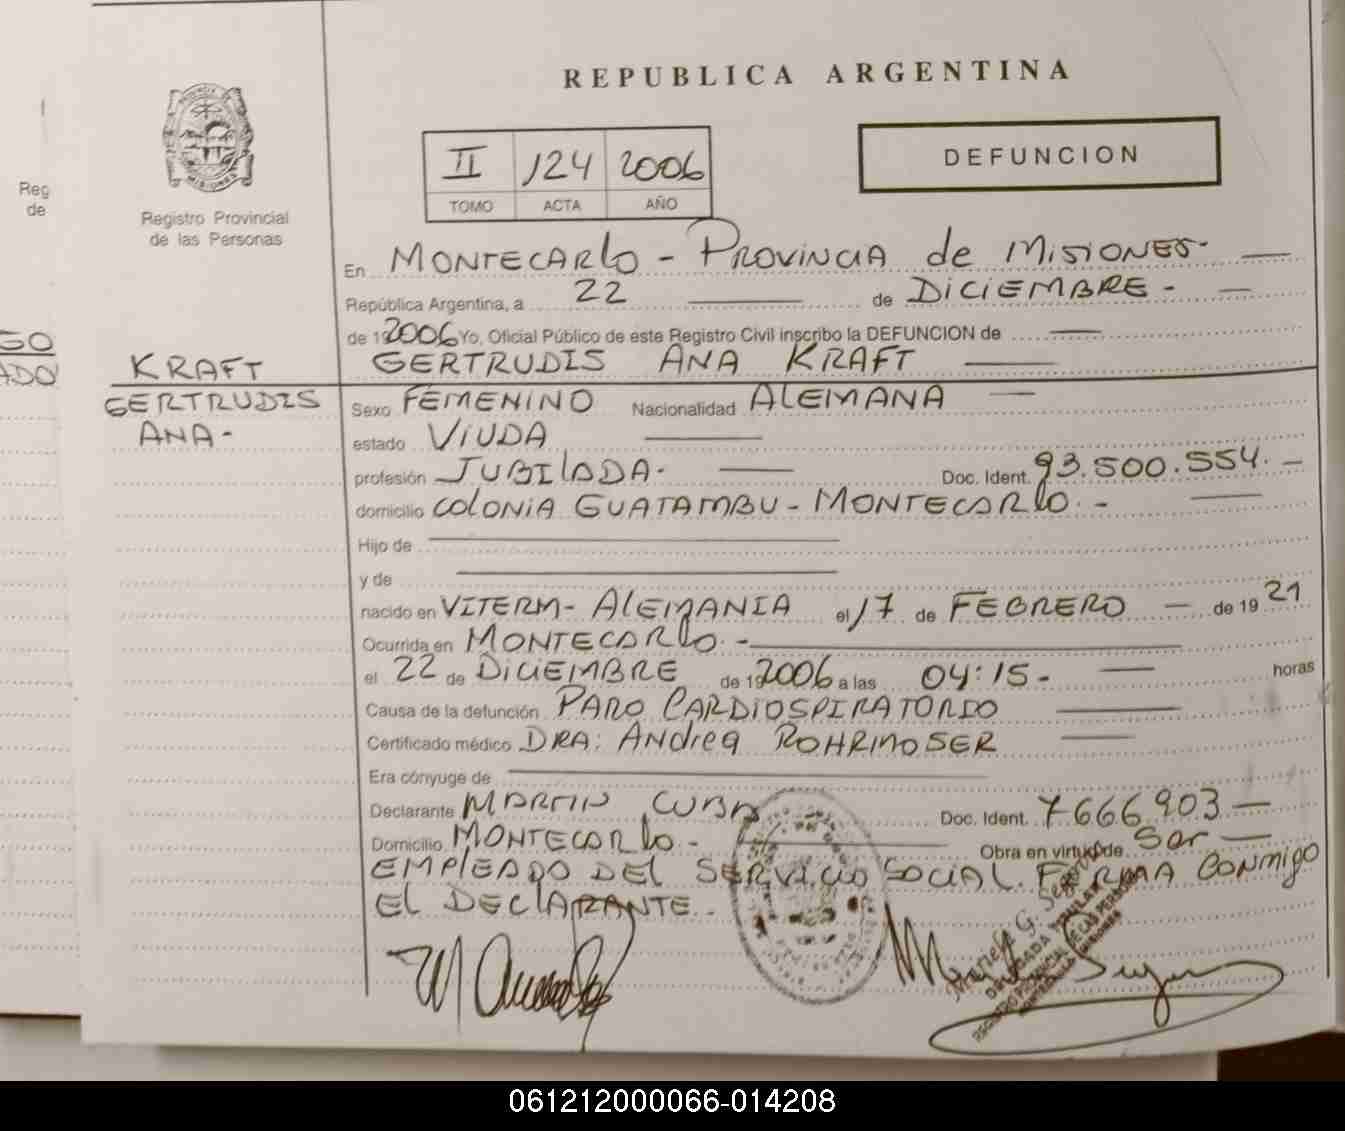 REPUBLICA ARGENTINA
DEFUNCION
II 124 2006
TOMO ACTA AÑO
Reg
de
Registro Provincial
de las Personas
PROVINCIA
MISIONES
En MONTECARLO - PROVINCIA de MISIONES -
República Argentina, a 22 de DICIEMBRE -
de 2006 Yo, Oficial Público de este Registro Civil inscribo la DEFUNCION de
GERTRUDIS ANA KRAFT
GO
ADO
KRAFT
GERTRUDIS
ANA -
Sexo FEMENINO Nacionalidad ALEMANA
estado VIUDA
profesión JUBILADA - Doc. Ident. 93.500.554. -
domicilio COLONIA GUATAMBU - MONTECARLO. -
Hijo de
y de
nacido en VITERM - ALEMANIA el 17 de FEBRERO - de 19 21
Ocurrida en MONTECARLO. -
el 22 de DICIEMBRE de 2006 a las 04:15 - horas
Causa de la defunción PARO CARDIOSPIRATORIO
Certificado médico DRA: ANdreA ROHRMOSER
Era cónyuge de
Declarante MARTIN CUBA Doc. Ident. 7.666.903 -
Domicilio MONTECARLO - Obra en virtud de Ser -
EMPLEADO DEL SERVICIO SOCIAL. FIRMA CONMIGO
EL DECLARANTE -
Mariela G.
DELEGADA TITULAR
REGISTRO PROVINCIAL DE LAS PERSONAS
MISIONES
061212000066-014208